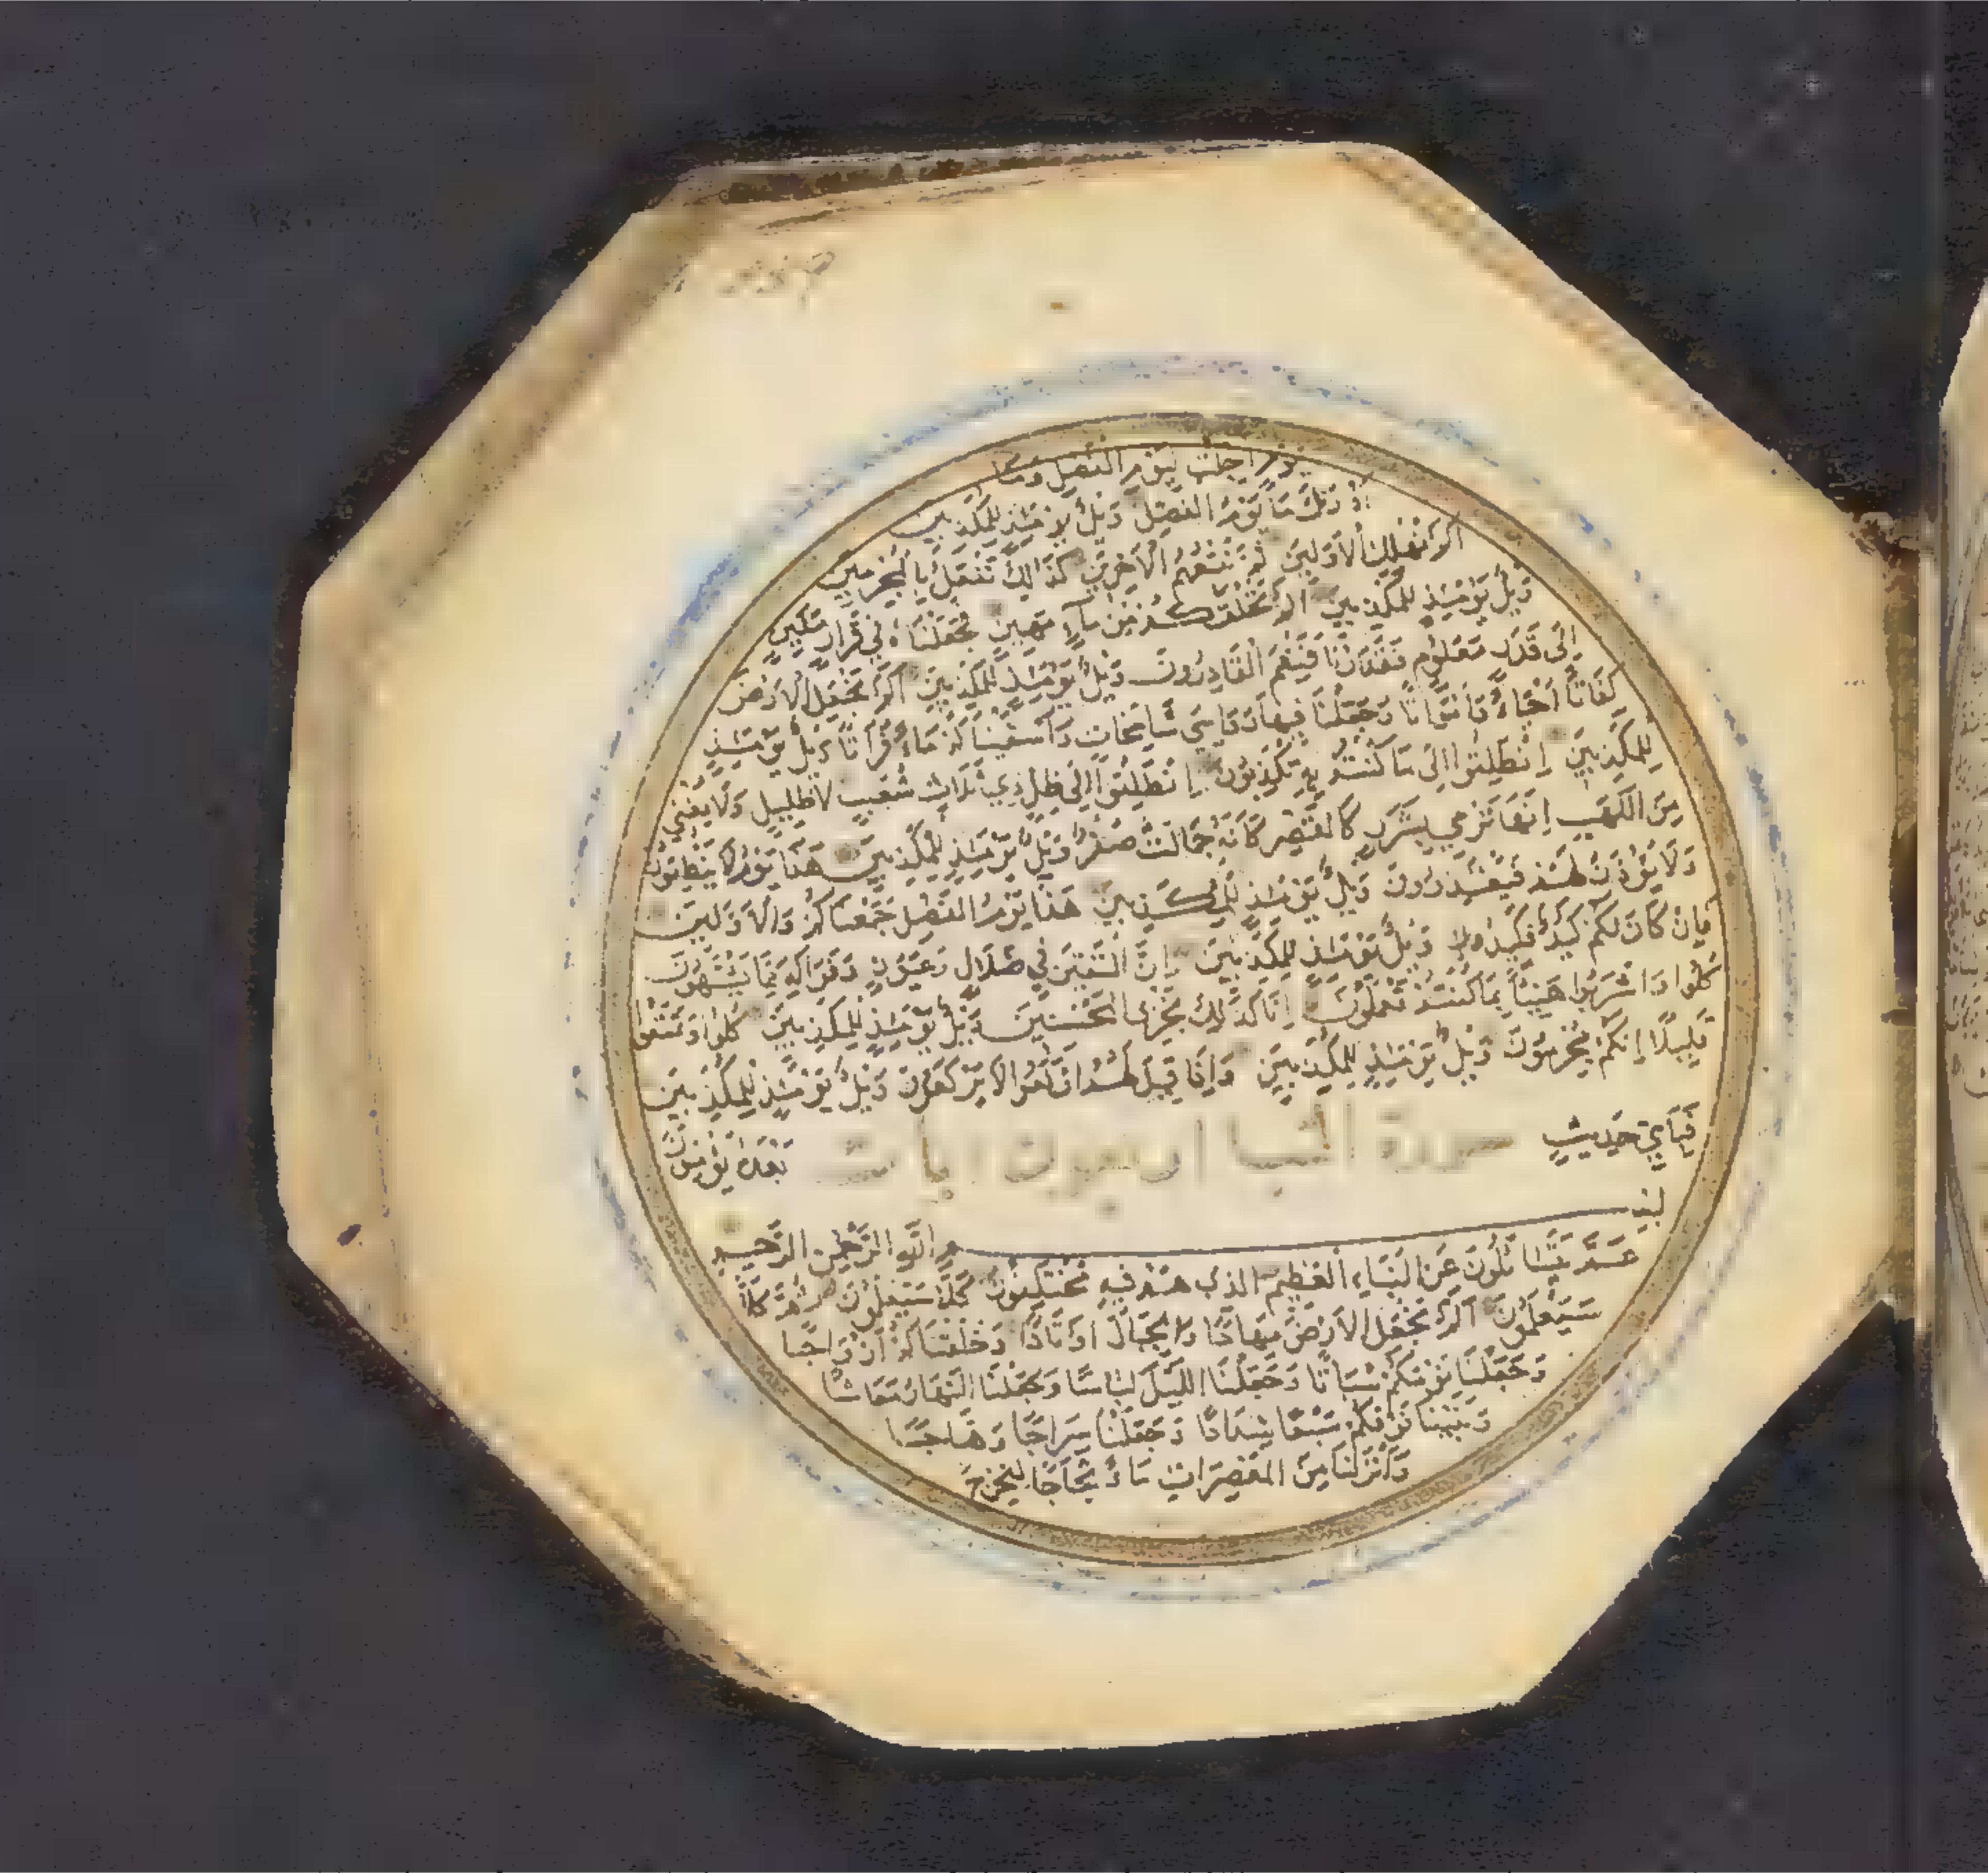 يوم اجلت ليوم الفصل وما
أدريك ما يوم الفصل ويل يومئذ للمكذبين
الم نهلك الاولين ثم نتبعهم الآخرين كذلك نفعل بالمجرمين
ويل يومئذ للمكذبين الم نخلقكم من ماء مهين فجعلناه في قرار مكين
إلى قدر معلوم فقدرنا فنعم القادرون ويل يومئذ للمكذبين الم نجعل الارض
كفاتا أحياء وأمواتا وجعلنا فيها رواسي شامخات وأسقيناكم ماء فراتا ويل يومئذ
للمكذبين انطلقوا الى ما كنتم به تكذبون انطلقوا إلى ظل ذي ثلاث شعب لا ظليل ولا يغني
من اللهب إنها ترمي بشرر كالقصر كأنه جمالت صفر ويل يومئذ للمكذبين هذا يوم لا ينطقون
ولا يؤذن لهم فيعتذرون ويل يومئذ للمكذبين هذا يوم الفصل جمعناكم والاولين
فإن كان لكم كيد فكيدون ويل يومئذ للمكذبين إن المتقين في ظلال وعيون وفواكه مما يشتهون
كلوا واشربوا هنيئا بما كنتم تعملون إنا كذلك نجزي المحسنين ويل يومئذ للمكذبين كلوا وتمتعوا
قليلا إنكم مجرمون ويل يومئذ للمكذبين وإذا قيل لهم اركعوا لا يركعون ويل يومئذ للمكذبين
فبأي حديث بعده يؤمنون
سورة النبا اربعون ايات
بسم الله الرحمن الرحيم
عم يتساءلون عن النباء العظيم الذي هم فيه مختلفون كلا سيعلمون ثم كلا
سيعلمون الم نجعل الارض مهادا والجبال اوتادا وخلقناكم ازواجا
وجعلنا نومكم سباتا وجعلنا الليل لباسا وجعلنا النهار معاشا
وبنينا فوقكم سبعا شدادا وجعلنا سراجا وهاجا
وأنزلنا من المعصرات ماء ثجاجا لنخرج